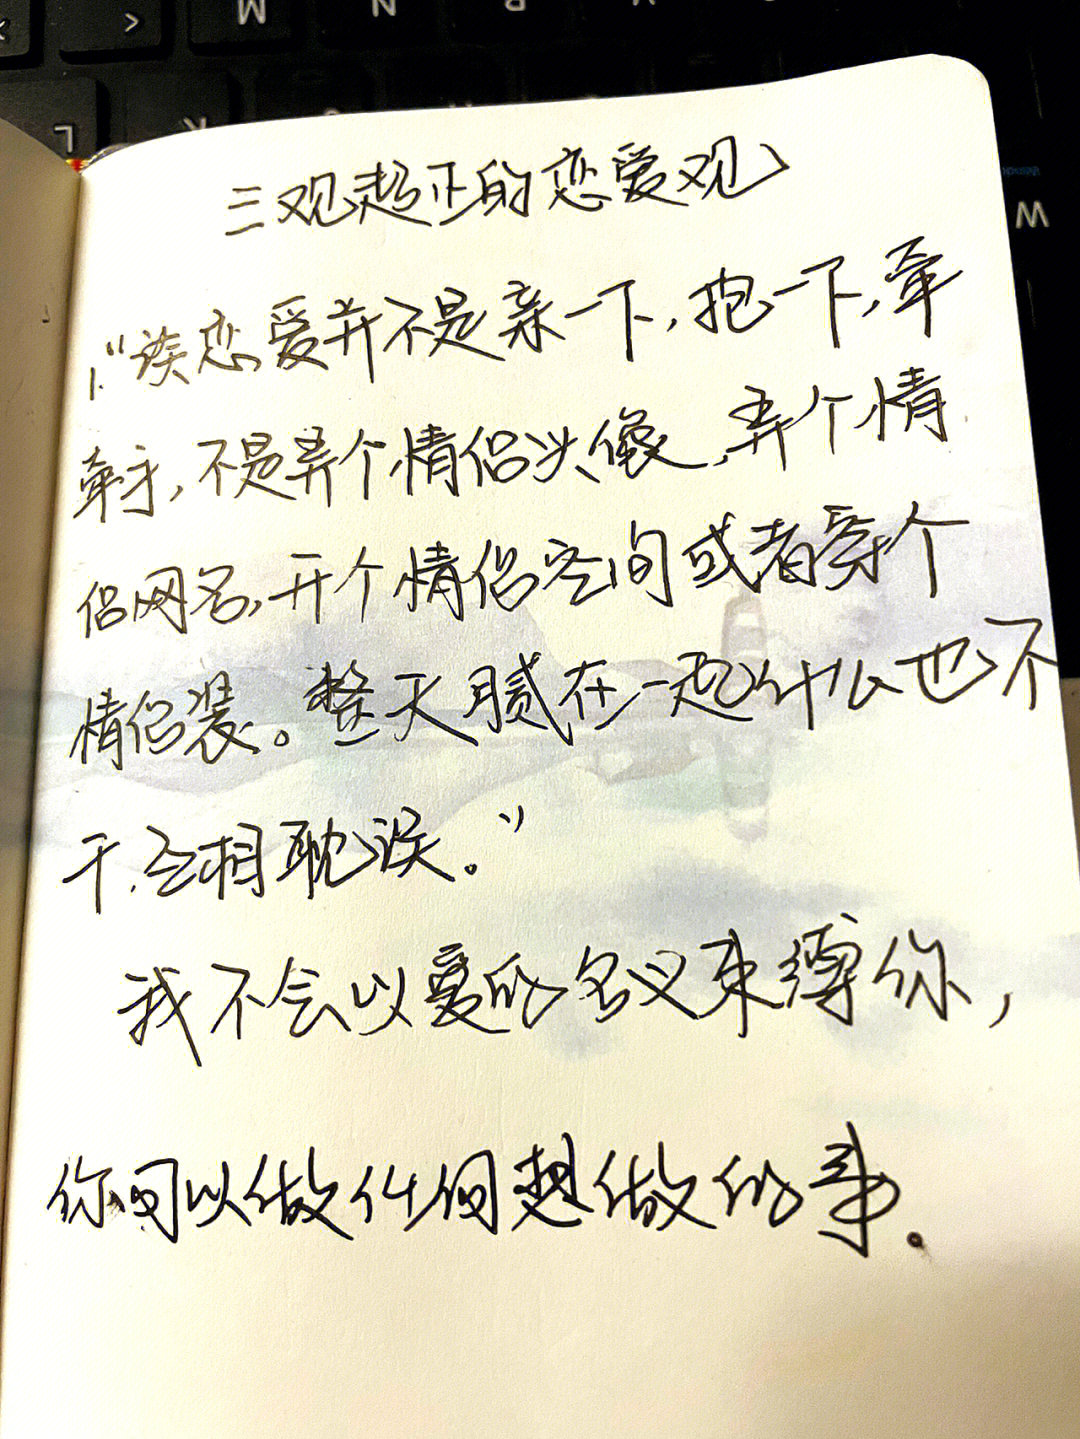 M N B V
L K
W
三观超正的恋爱观
1."谈恋爱并不是亲一下,抱一下,牵
牵手,不是弄个情侣头像,弄个情
侣网名,开个情侣空间或者买个
情侣装。整天腻在一起什么也不
干,互相耽误。"
我不会以爱的名义束缚你,
你可以做任何想做的事。